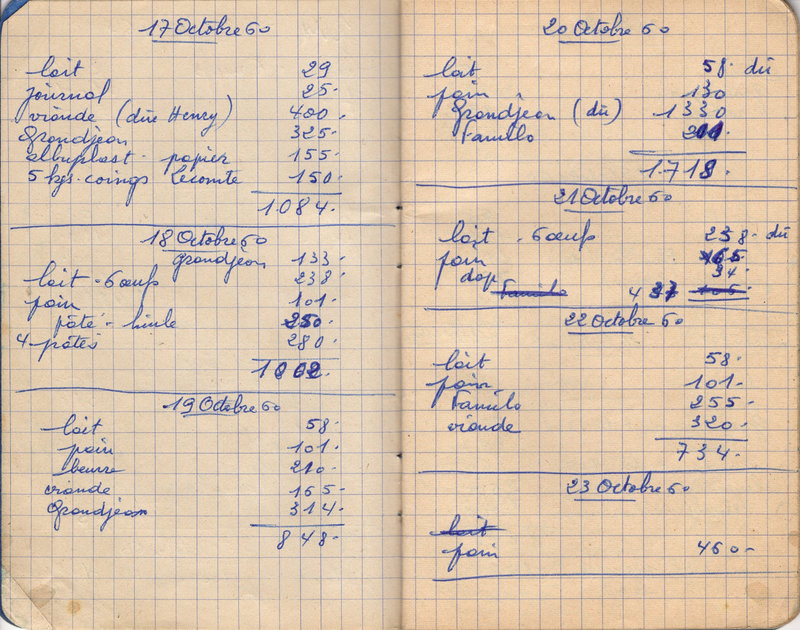 17 Octobre 60
lait 29
journal 25-
viande (dûe Henry) 400-
Grandjean 325-
albuplast - papier 155-
5 kgs. coings Lecomte 150-
1084-
18 Octobre 60
Grandjean 133-
lait - 6 œufs 238-
pain 101-
pâté - huile 250-
4 pâtés 280-
1002-
19 Octobre 60
lait 58-
pain 101-
beurre 210-
viande 165-
Grandjean 314-
848-
20 Octobre 60
lait 58- dû
pain 130
Grandjean (dû) 1330
Familo 200-
1.718-
21 Octobre 60
lait - 6 œufs 238- dû
pain 165-
dop 34-
Familo 437
22 Octobre 60
lait 58-
pain 101-
Familo 255-
viande 320-
734-
23 Octobre 60
lait
pain 460-